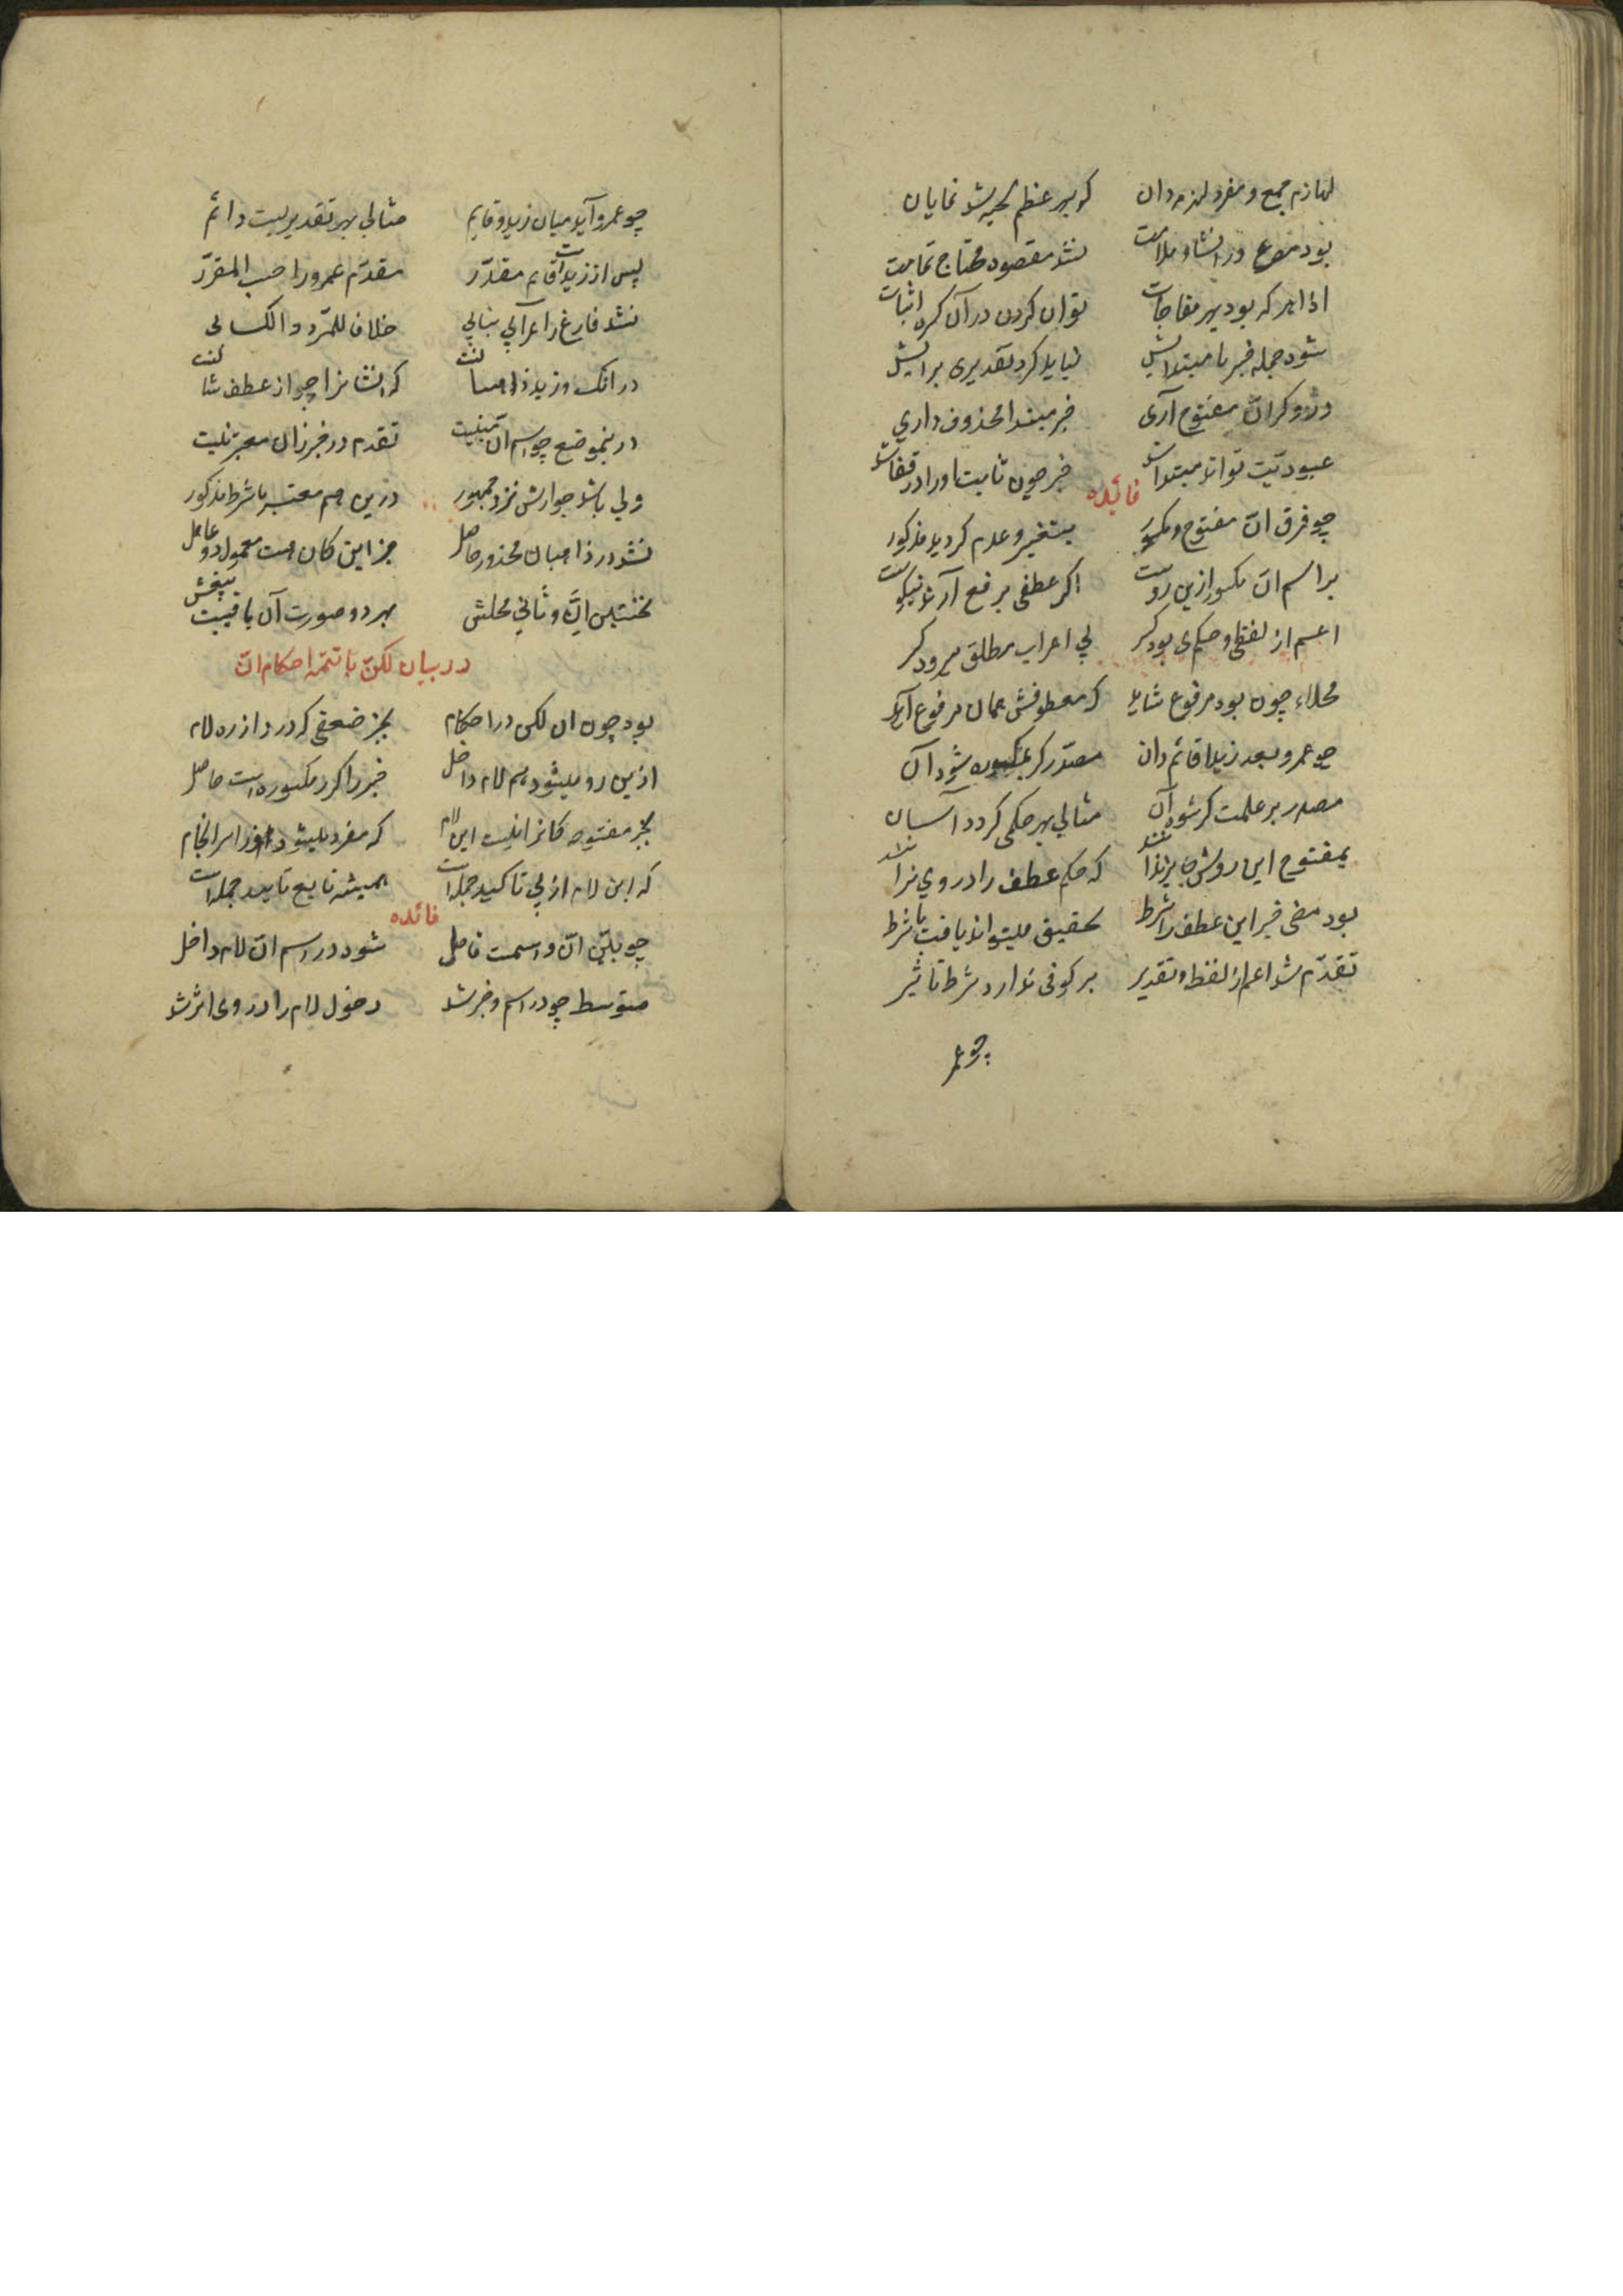 لهازم جمع و مفرد لهزمه دان که بهر عظم لحیه شد نمایان
بود موضع در انشاد ملامت نشد مقصود محتاج تمامیت
اذا هر که بود بهر مفاجات توان کردن در آن کره اثبات
شود جمله خبر با مبتدایش نباید کرد تقدیری برایش
وگر مفتوح آری خبر مبتدا محذوف داری
عبودیت تواند مبتدا شد خبر چون ثابت او را در قفا شد
فائده
چو فرق انّ مفتوح و مکسور بتغییر و عدم گردید مذکور
بر اسم انّ مکسور ازین روست اگر عطفی برفع آرند نیکوست
اعم از لفظی و حکمی بود کسر پی اعراب مطلق میرود کسر
محلاء چون بود مرفوع شاید که معطوفش همان مرفوع آید
چو عمرو بعد زیدا قائم دان مصدّر گر بمکسوره شود آن
مصدر بر علمت گر شود آن مثالی بهر حکمی گردد آسان
بمفتوح این روش جایز نشد که حکم عطف را در وی نزاشد
بود مضی خبر این عطف را شرط بتحقیق میتواند یافت با شرط
تقدّم شد اعم از لفظ و تقدیر بر کوفی ندارد شرط تاثیر
چو عمر
چو عمرو آید میان زید و قایم مثالی بهر تقدیریست دائم
پس از زیداست قایم مقدّر مقدّم عمرو را حسب المقرّر
نشد فارغ ز اعرابی بنایی خلافا للمبّرد و الکسائی
در انک و زید ذاهبا که انشانرا چو از عطف
درینموضع چو اسم انّ مبنیست تقدم در خبر زان معتبر نیست
ولی باشد جوازش نزد جمهور درین هم معتبر با شرط مذکور
نشد در ذاهبان محذور حاصل جز این کان هست معمول دو عامل
نخستین انّ و ثانی محلش بهر دو صورت آن باقیست
در بیان لکنّ با تتمه احکام انّ
بود چون ان لکن در احکام بجز ضعفی که دارد از ره لام
ازین رو میشود هم لام داخل خبر را گر ز مکسوره است حاصل
بجز مفتوحه کانرا نیست این لام که مفرد میشود او را سرانجام
که این لام از پی تاکید جمله است همیشه تابع تایید جمله است
فائده
چو بین انّ و اسمت فاصل شود در اسم انّ لام داخل
متوسط چو در اسم و خبر شد دخول لام را در وی اثر شد